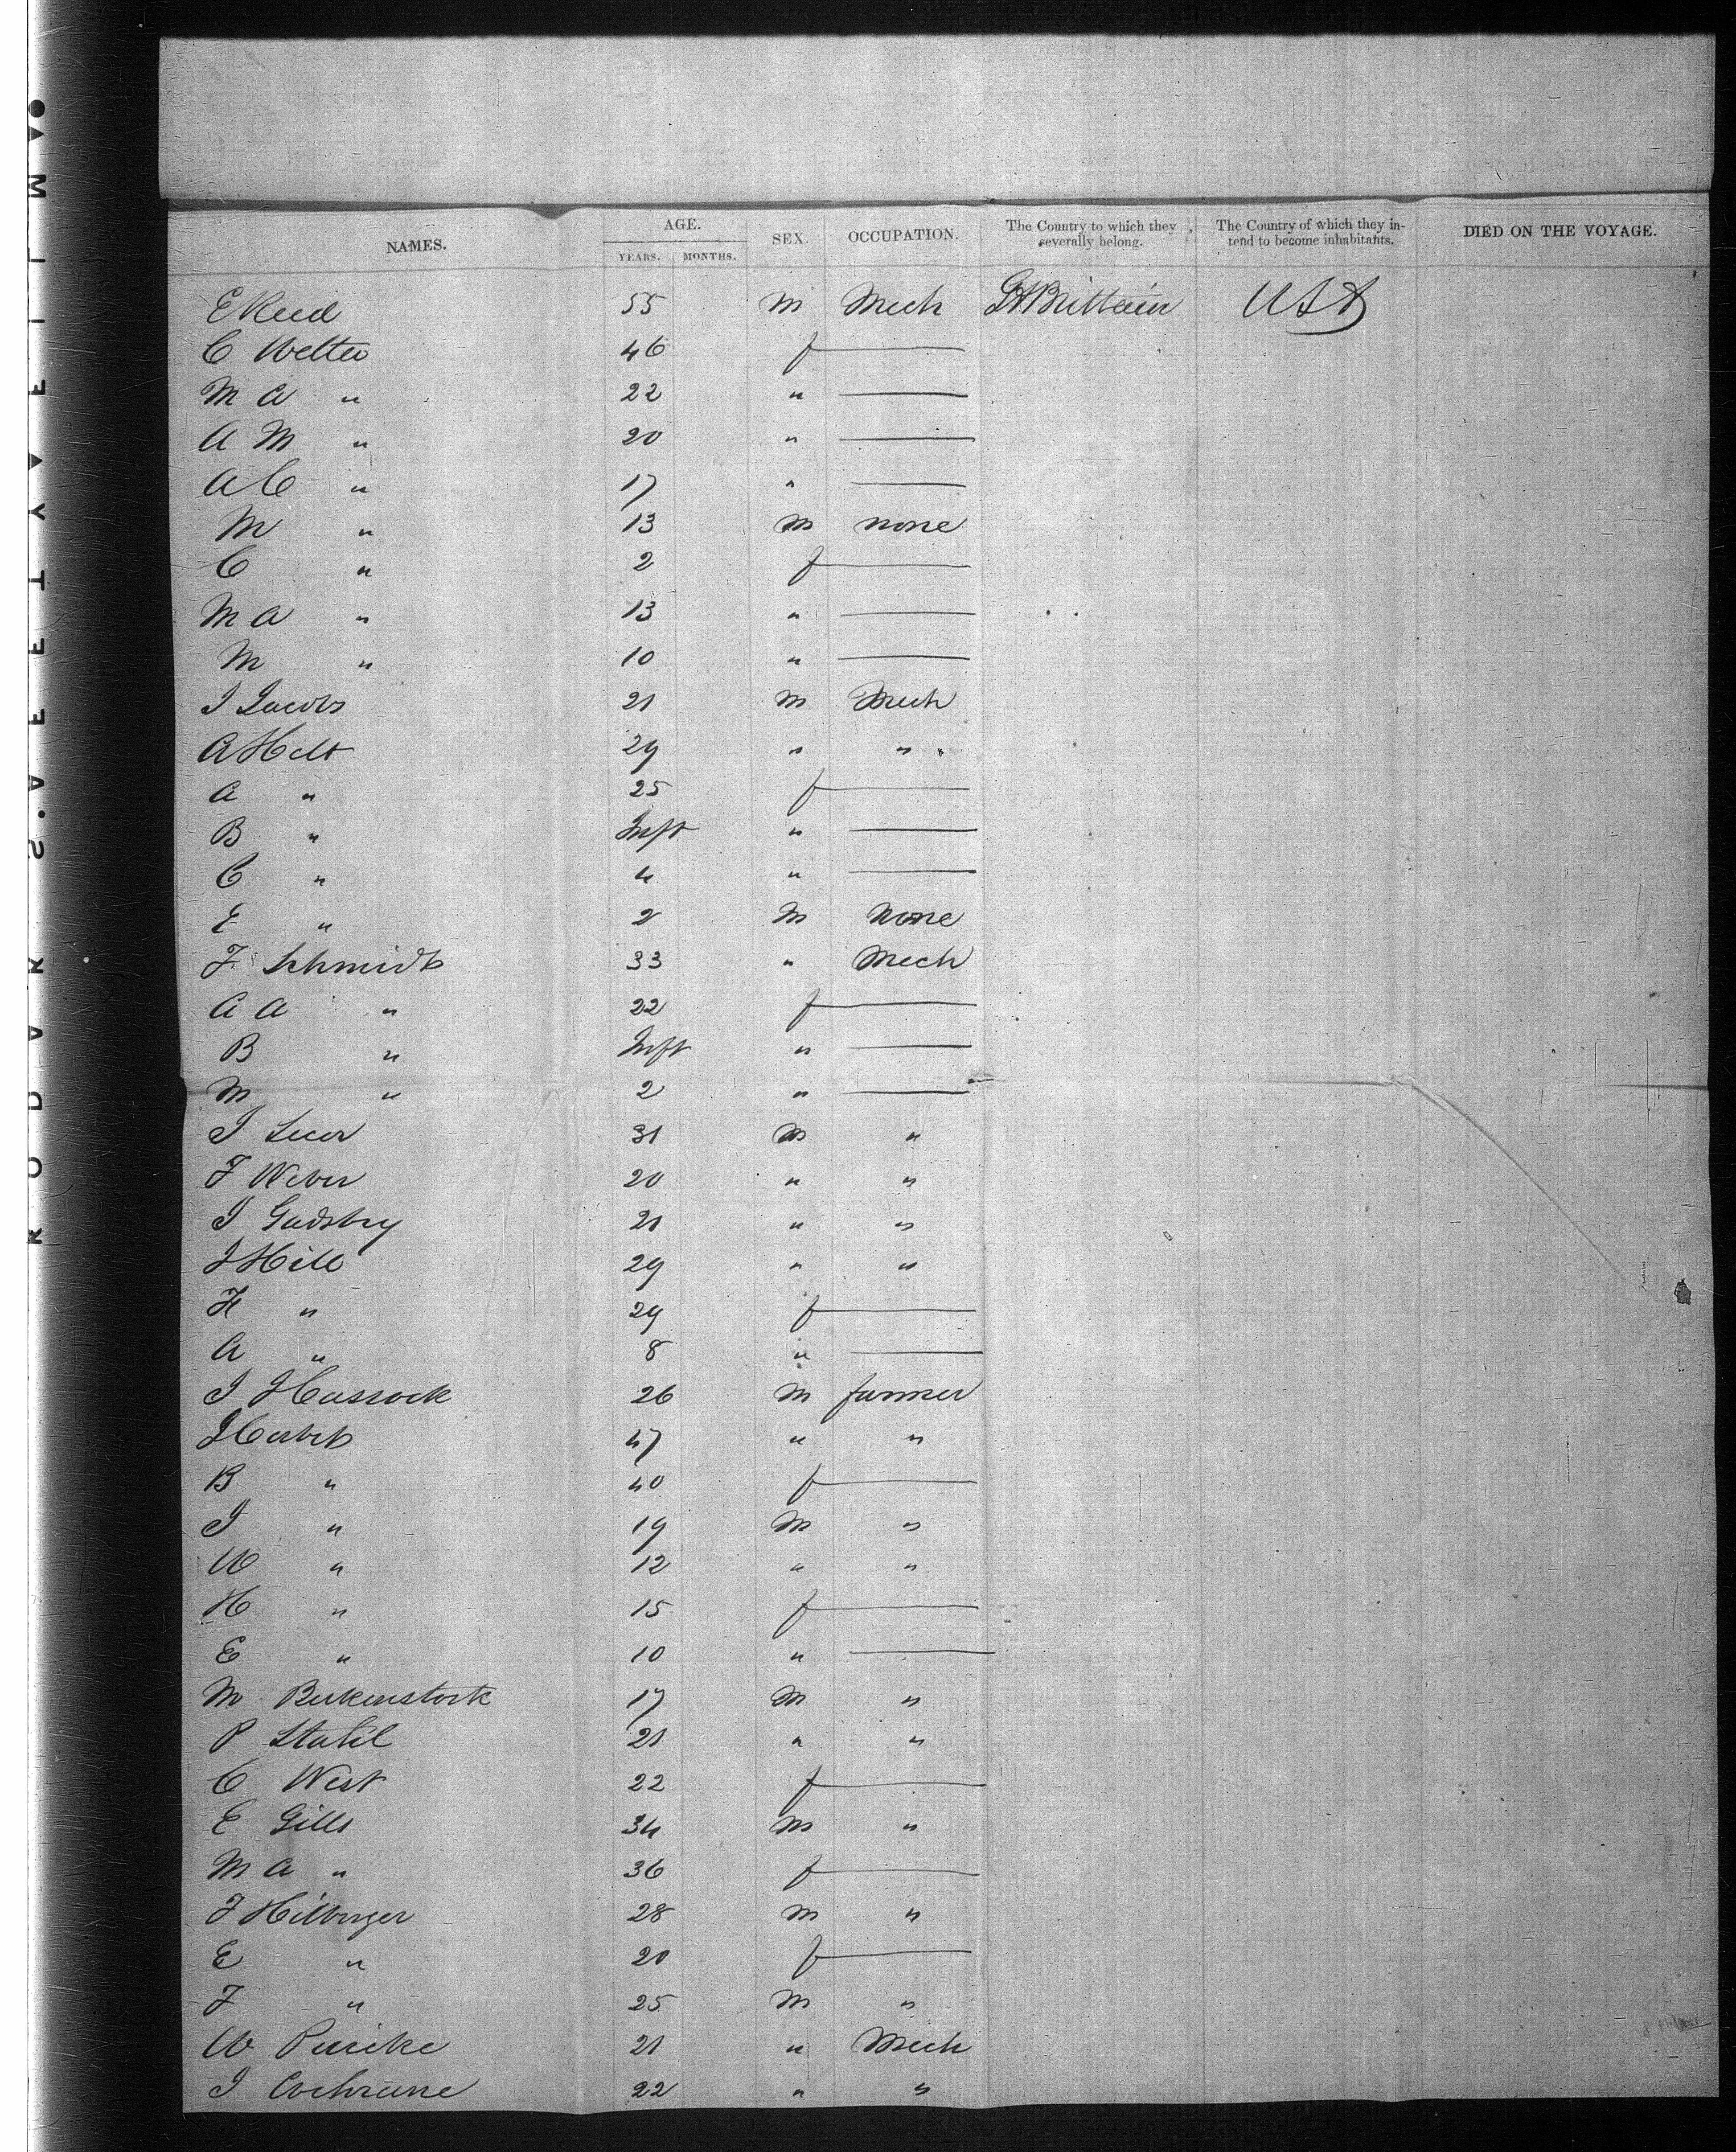 NAMES. AGE. SEX. OCCUPATION. The Country to which they severally belong. The Country of which they intend to become inhabitants. DIED ON THE VOYAGE.
YEARS. MONTHS.
E Reed 55 m Mech Gt Brittain USA
C Welter 46 f —
M A " 22 " —
A M " 20 " —
A C " 17 " —
M " 13 m none
C " 2 f —
M A " 13 " —
M " 10 " —
J Jacobs 21 m Mech
A Helt 29 " "
A " 25 f —
B " Inft " —
C " 4 " —
E " 2 m none
F Schmidt 33 " Mech
A A " 22 f —
B " Inft " —
M " 2 " —
J 31 m "
F Weber 20 " "
J Gadsby 21 " "
J Hill 29 " "
H " 29 f —
A " 8 " —
J Hassock 26 m farmer
47 " "
B " 40 f —
J " 19 m "
W " 12 " "
H " 15 f —
E " 10 " —
M Birkenstock 17 m "
P Stahl 21 " "
C West 22 f —
E Gills 34 m "
M A " 36 f —
F Hilberger 28 m "
E " 20 f —
F " 25 m "
W 21 " Mech
J Cochrane 22 " "
KODAK S.A.F.E.T.Y. FILM